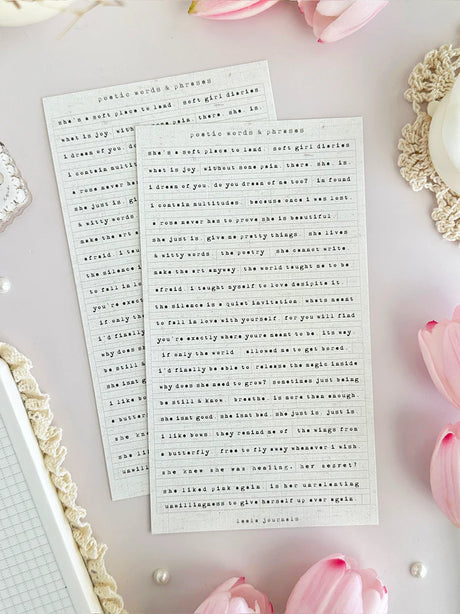 poetic words & phrases
she's a soft place to land. soft girl diaries
what is joy. without some pain. there she is.
i dream of you
i contain mult
a rose never has
she just is. gi
& witty words
make the art an
afraid. i taug
the silence is
to fall in love
you're exact
if only the
i'd finally
why does she
be still &
she isnt
i like bo
a butter
she kn
she li
unwill
poetic words & phrases
she's a soft place to land. soft girl diaries
what is joy. without some pain. there she is.
i dream of you. do you dream of me too? im found
i contain multitudes. because once i was lost.
a rose never has to prove she is beautiful.
she just is. give me pretty things. she lives
& witty words. the poetry she cannot write.
make the art anyway. the world taught me to be
afraid. i taught myself to love desipite it.
the silence is a quiet invitation. whats meant
to fall in love with yourself. for you will find
you're exactly where youre meant to be. its way.
if only the world allowed me to get bored.
i'd finally be able to release the magic inside
why does she need to grow? sometimes just being
be still & know. breathe. is more than enough.
she isnt good. she isnt bad. she just is. just is.
i like bows. they remind me of the wings from
a butterfly. free to fly away whenever i wish.
she knew she was healing. her secret?
she liked pink again. is her unrelenting
unwillingness to give herself up ever again.
leela journals